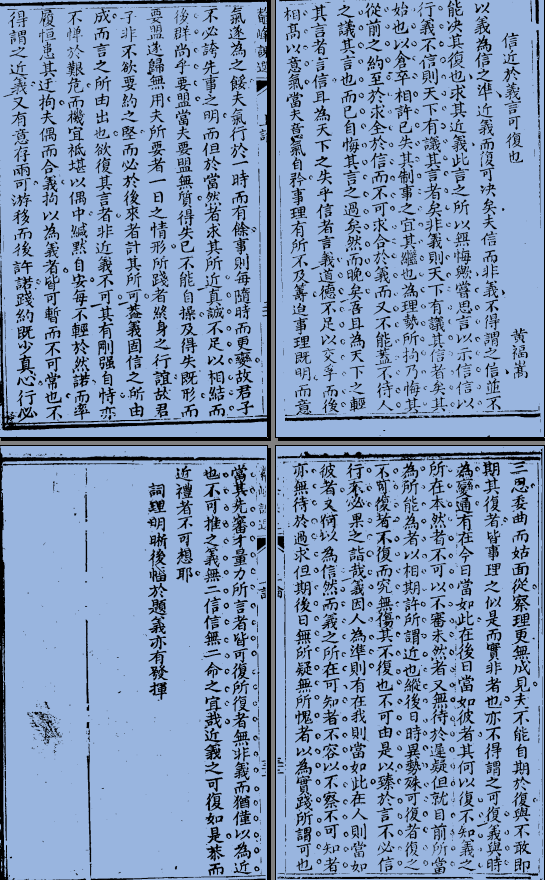 信近於義言可復也
黃福嵩
以義為信之準近義而復可决矣夫信而非義不得謂之信並不
能决其復也求其近義此言之所以無悔歟嘗思言以示信信以
行義不信則天下有議其言者矣非義則天下有議其信者矣其
始也以倉卒相許已失其制事之宜其繼也為理勢所拘乃悔其
從前之約至於求全於信而不可求合於義而又不能蓋不待人
之議其言也而已自悔其言之過矣然而晚矣吾且為天下之輕
其言者言信且為天下之失乎信者言義道德不足以交孚而後
相髙以意氣當夫意氣自矜事理有所不及籌迨事理既明而意
氣遂為之餒夫氣行於一時而有餘事則每隨時而更變故君子
不必誇先事之明而但於當然者求其所近真誠不足以相結而
後群尚乎要盟當夫要盟無質得失已不能自操及得失既形而
要盟遂歸無用夫所要者一日之情形所踐者終身之行誼故君
子非不欲要約之堅而必於後來者計其所可蓋義固信之所由
成而言之所由出也欲復其言者非近義不可其有剛强自恃亦
不憚於艱危而機宜柢堪以偶中緘默自安每不輕於然諾而率
履恒患其迂拘夫偶而合義拘以為義者皆可暫而不可常也不
得謂之近義又有意存兩可游移而後許諾踐約既少真心行必
三思委曲而姑面從察理更無成見夫不能自期於復與不敢即
期其復者皆事理之似是而實非者也亦不得謂之可復義與時
為變通有在今日當如此在後日當如彼者其何以復不知義之
所在本然者不可以不審未然者又無待於遲疑但就目前所當
為所能為者以相期許所謂近也縱後日時異勢殊可復者復之
不可復者不復而究無傷其不復也不可由是以臻於言不必信
行不必果之詣哉義因人為準則有在我則當如此在人則當如
彼者又何以為信然而義之所在可知者不容以不察不可知者
亦無待於過求但期後日無所疑無所愧者以為實踐所謂可也
當其先審才量力所言者皆可復所復者無非義而猶僅以為近
也不可推之義無二信信無二命之宜哉近義之可復如是恭而
近禮者不可想耶
詞理明晰後幅於題義亦有發揮